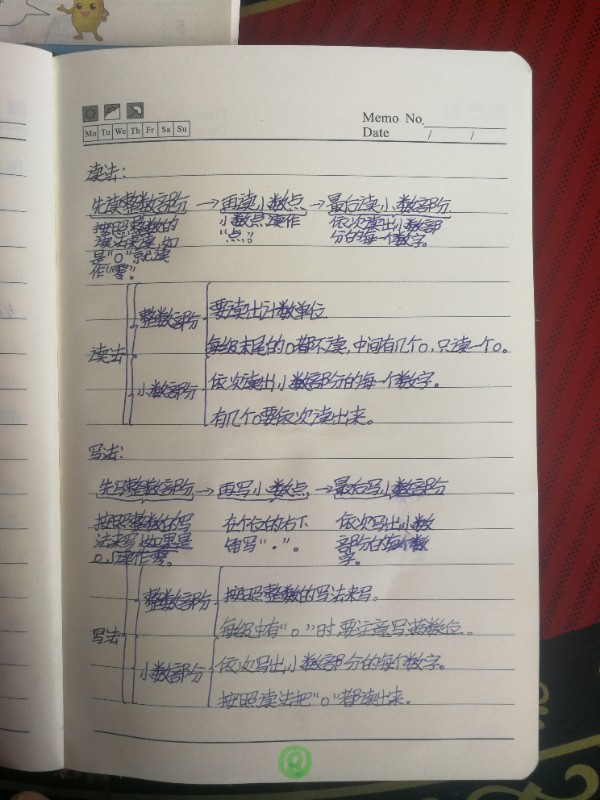 Memo No.
Mo Tu We Th Fr Sa Su
Date / /
读法:
先读整数部分→再读小数点→最后读小数部分
按照整数的 小数点读作 依次读出小数部
读法来读,如 "点"。 分的每一个数字。
是"0"就读
作"零"。
整数部分 要读出计数单位
读法 每级末尾的0都不读,中间有几个0,只读一个0。
小数部分 依次读出小数部分的每一个数字。
有几个0要依次读出来。
写法:
先写整数部分→再写小数点→最后写小数部分
按照整数的写 在个位的右下 依次写出小数
法来写,如果是 角写"."。 部分的每个数
0,读作零。 字。
整数部分 按照整数的写法来写。
每级中有"0"时要注意写其数位。
写法
小数部分 依次写出小数部分的每个数字。
按照读法把"0"都读出来。